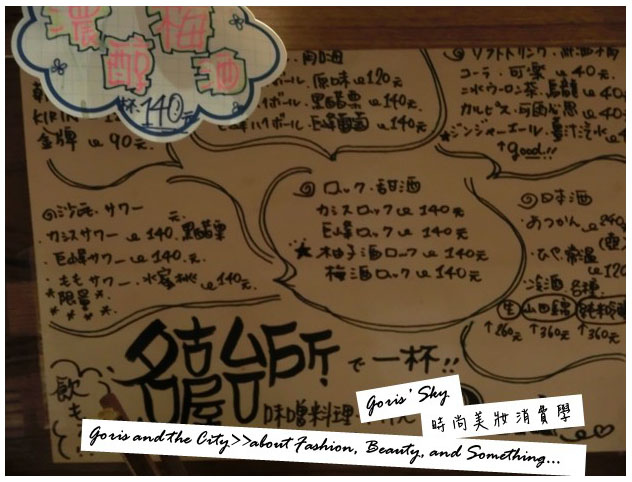 濃醇梅酒
杯 140元
KIRIN
金牌 ㄩ 90元.
ボール. 原味 ㄩ 120元
ボール. 黑醋栗 ㄩ 140元
巨峰ハイボール. 巨峰 ㄩ 140元
◎ソフトドリンク.
コーラ. 可樂 ㄩ 40元.
ㄩ 40元
カルピス. 可爾必思 ㄩ 40元
★ジンジャーエール. 薑汁汽水 ㄩ
↑good!!
◎沙瓦. サワー
・カシスサワー ㄩ 140元. 黑醋栗
・巨峰サワー ㄩ 140元.
・ももサワー. 水蜜桃 ㄩ 140元
*限量*
◎ロック. 甜酒
カシスロック ㄩ 140元
巨峰ロック ㄩ 140元
★柚子酒ロック ㄩ 140元
梅酒ロック ㄩ 140元
◎日本酒
・あつかん. ㄩ 240
・ひや. 常溫
ㄩ 120
・冷酒 各種.
生 山田錦
↑260元 ↑360元 ↑360元
名古屋台所
で一杯!!
味噌料理
飲
Goris' Sky
時尚美妝消費學
Goris and the City>>about Fashion, Beauty, and Something...